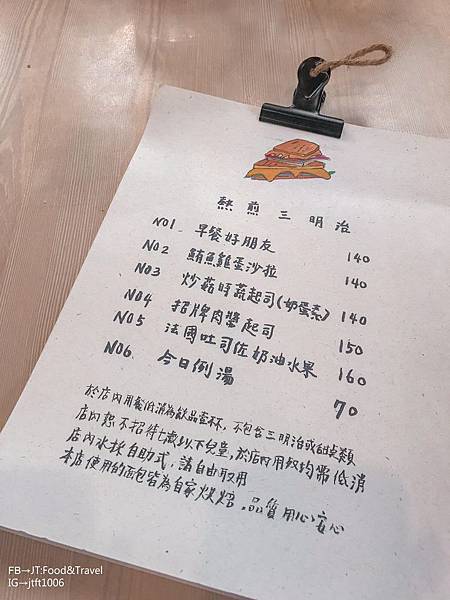 熱煎三明治
NO1. 早餐好朋友 140
NO2 鮪魚雞蛋沙拉 140
NO3 炒菇時蔬起司(奶蛋素) 140
NO4 招牌肉醬起司 150
NO5 法國吐司佐奶油水果 160
NO6. 今日例湯 70
於店內用餐低消為飲品壹杯，不包含三明治或甜點類
店內恕不招待七歲以下兒童，於店內用
店內水採自助式，請自由取用
本店使用的麵包皆為自家烘焙，品質用心安心
FB→JT:Food&Travel
IG→jtft1006